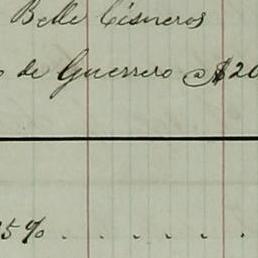 Belle Cisneros
de Guerrero @ $20
5% . . . . . . .